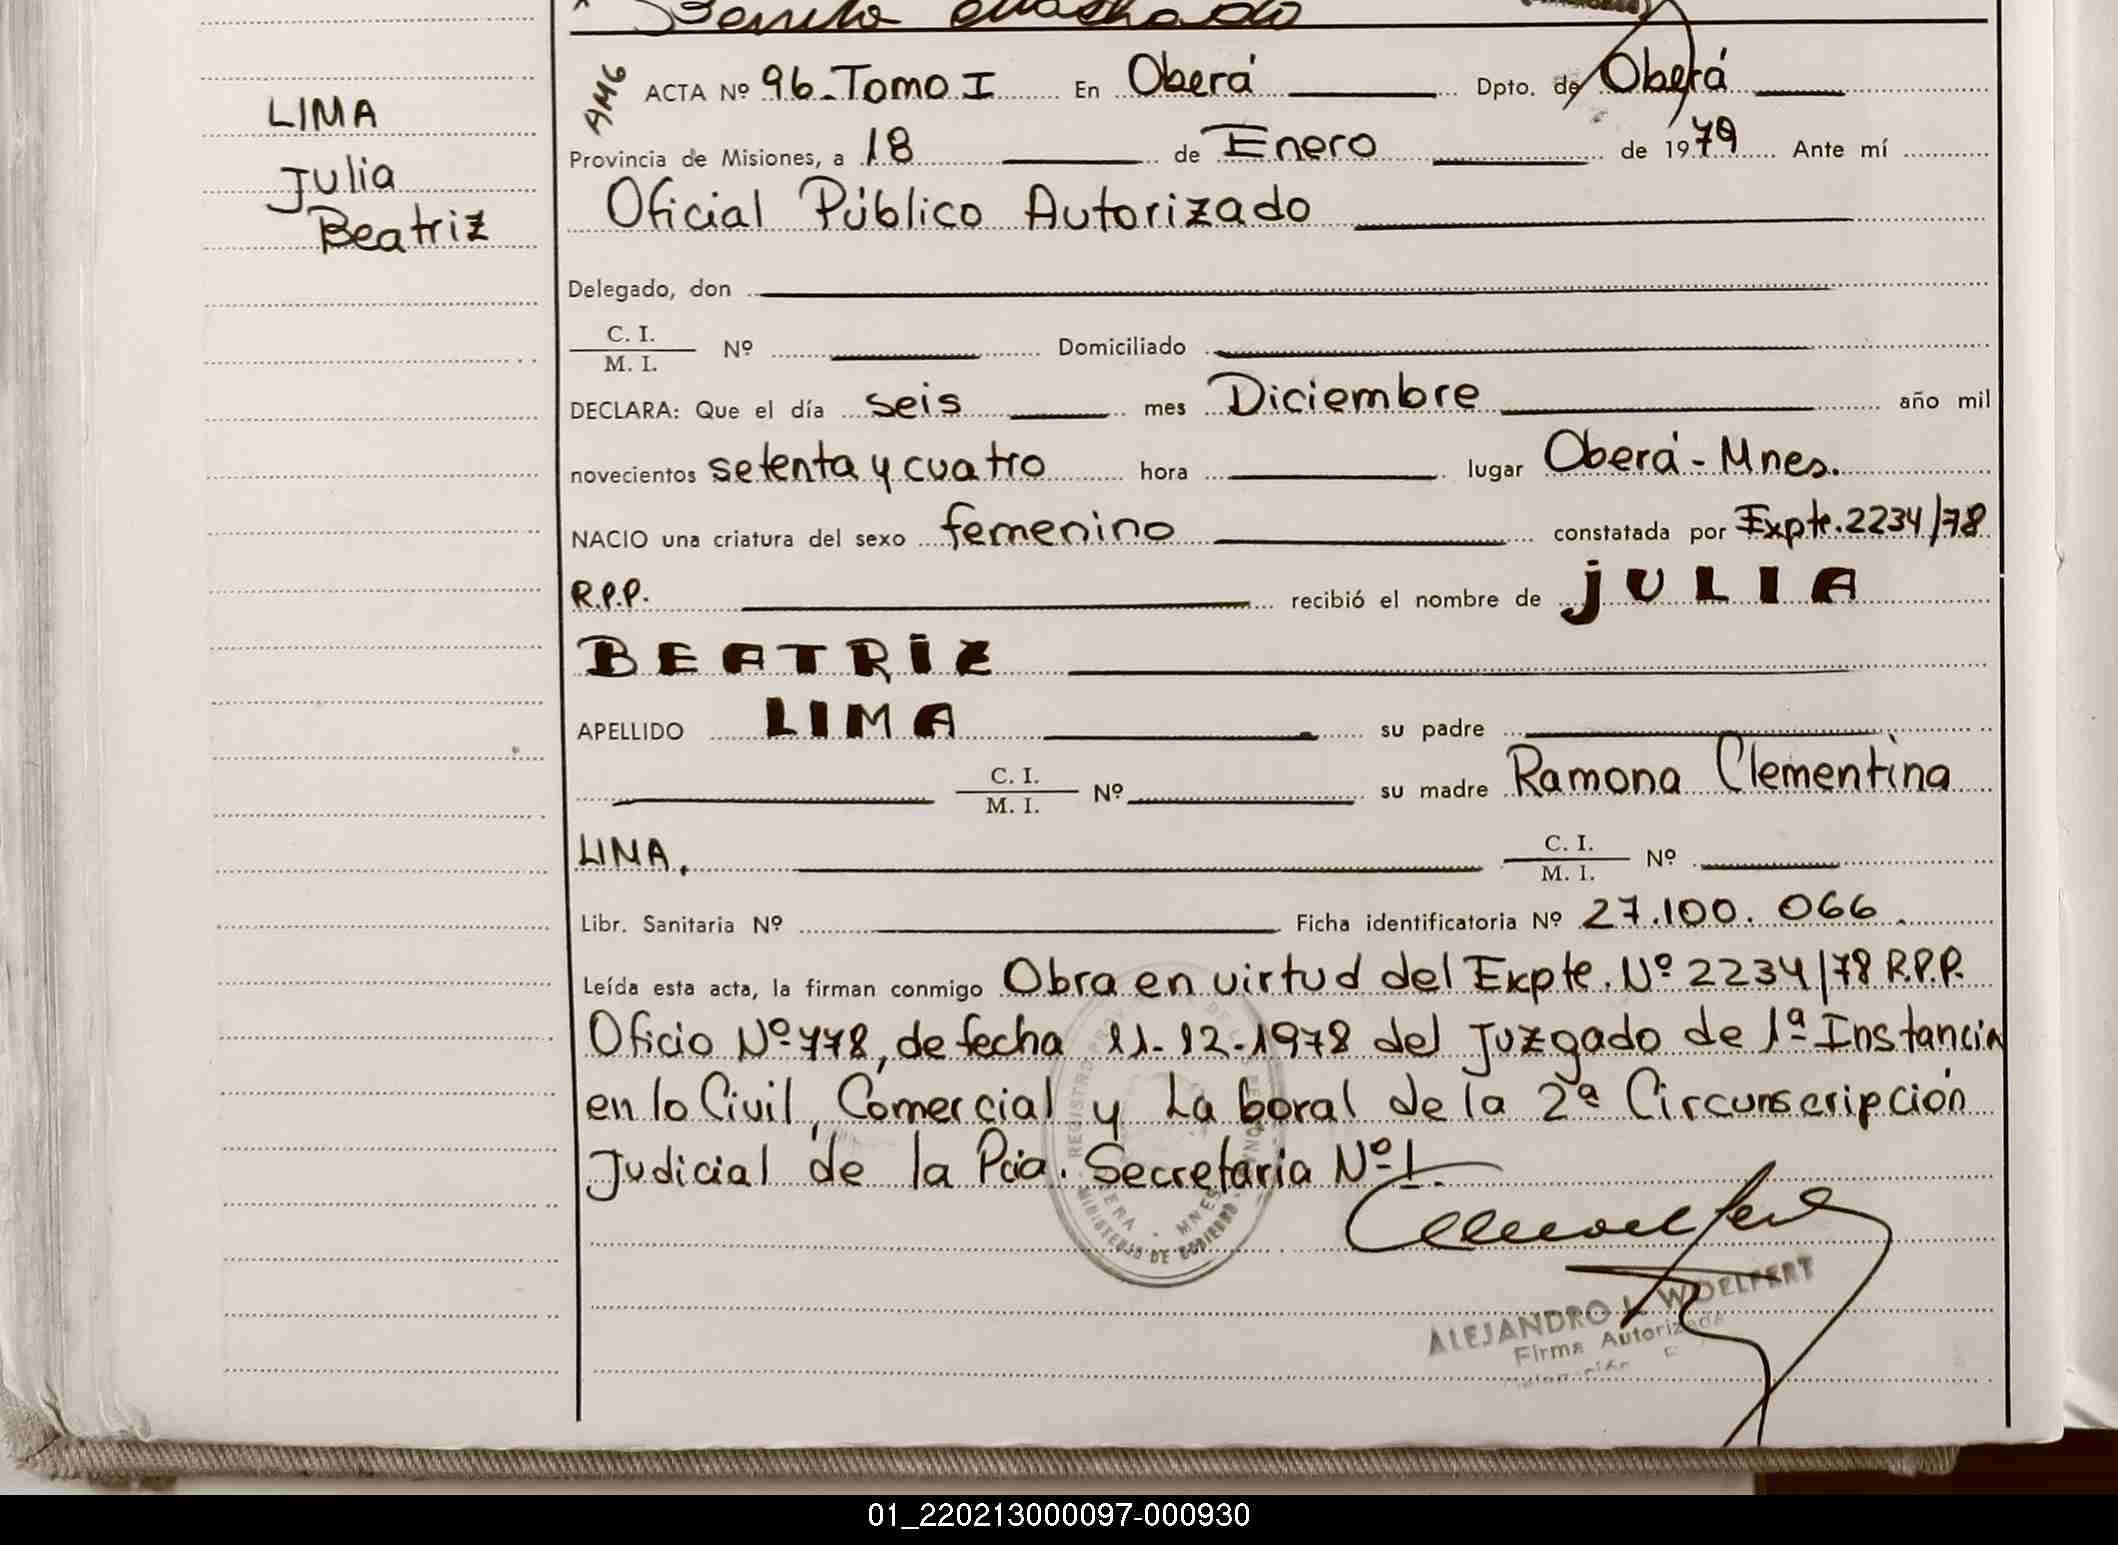 Benito Machado
LIMA
Julia
Beatriz
AMG
ACTA Nº 96-Tomo I En Oberá Dpto. de Oberá
Provincia de Misiones, a 18 de Enero de 1979 Ante mí
Oficial Público Autorizado
Delegado, don
C. I.
M. I. Nº Domiciliado
DECLARA: Que el día seis mes Diciembre año mil
novecientos setenta y cuatro hora lugar Oberá - Mnes.
NACIO una criatura del sexo femenino constatada por Expte. 2234/78
R.P.P. recibió el nombre de JULIA
BEATRIZ
APELLIDO LIMA su padre
C. I.
M. I. Nº su madre Ramona Clementina
LIMA. C. I.
M. I. Nº
Libr. Sanitaria Nº Ficha identificatoria Nº 27.100.066.
Leída esta acta, la firman conmigo Obra en virtud del Expte. Nº 2234/78 R.P.P.
Oficio Nº 778, de fecha 11-12-1978 del Juzgado de 1ª Instancia
en lo Civil, Comercial y Laboral de la 2ª Circunscripción
Judicial de la Pcia. Secretaria Nº 1.
MINISTERIO DE GOBIERNO
ALEJANDRO L. WOELFERT
Firma Autorizada
01_220213000097-000930